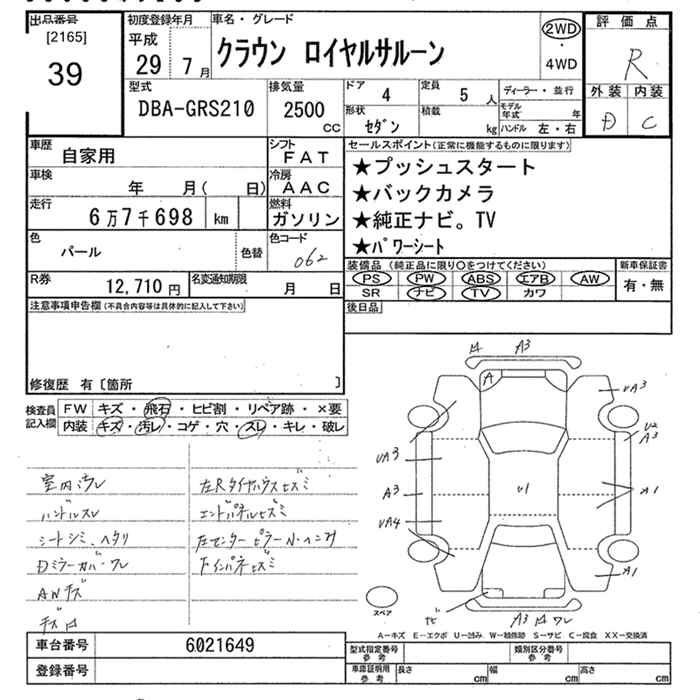 出品番号
[2165]
39
初度登録年月
平成
29 7 月
車名・グレード
クラウン ロイヤルサルーン
2WD
・
4WD
評価点
R
外装 内装
D C
型式
DBA-GRS210
排気量
2500
CC
ドア 4
定員 5 人
形状 セダン
積載 kg
ディーラー・並行
モデル年式 年
ハンドル 左・右
車歴 自家用
シフト FAT
車検 年 月( 日)
冷房 AAC
走行 6万7千698 km
燃料 ガソリン
色 パール 色替
色コード 062
R券 12,710 円
名変通知期限 月 日
セールスポイント(正常に機能するものに限ります)
★プッシュスタート
★バックカメラ
★純正ナビ。TV
★パワーシート
装備品 (純正品に限り○をつけてください)
PS PW ABS エアB AW
SR ナビ TV カワ
新車保証書
有・無
注意事項申告欄(不具合内容等は具体的に記入して下さい)
後日品
修復歴 有〔箇所 〕
検査員
記入欄
FW キズ・飛石・ヒビ割・リペア跡・×要
内装 キズ・汚レ・コゲ・穴・スレ・キレ・破レ
室内汚レ
ハンドルスレ
シートシミ、ヘタリ
Dミラーカバーワレ
AWキズ
左Rタイヤハウスヒズミ
エンドパネルヒズミ
左センターピラーN・ヘコミ
A3
A
UA3
U2
A3
UA3
A3
UA4
U1
A1
A1
A3
ワレ
スペア
A-キズ E-エクボ U-凹み W-補修跡 S-サビ C-腐食 XX-交換済
車台番号 6021649
登録番号
型式指定番号
参考
類別区分番号
参考
車庫証明用
参考
長さ cm
幅 cm
高さ cm